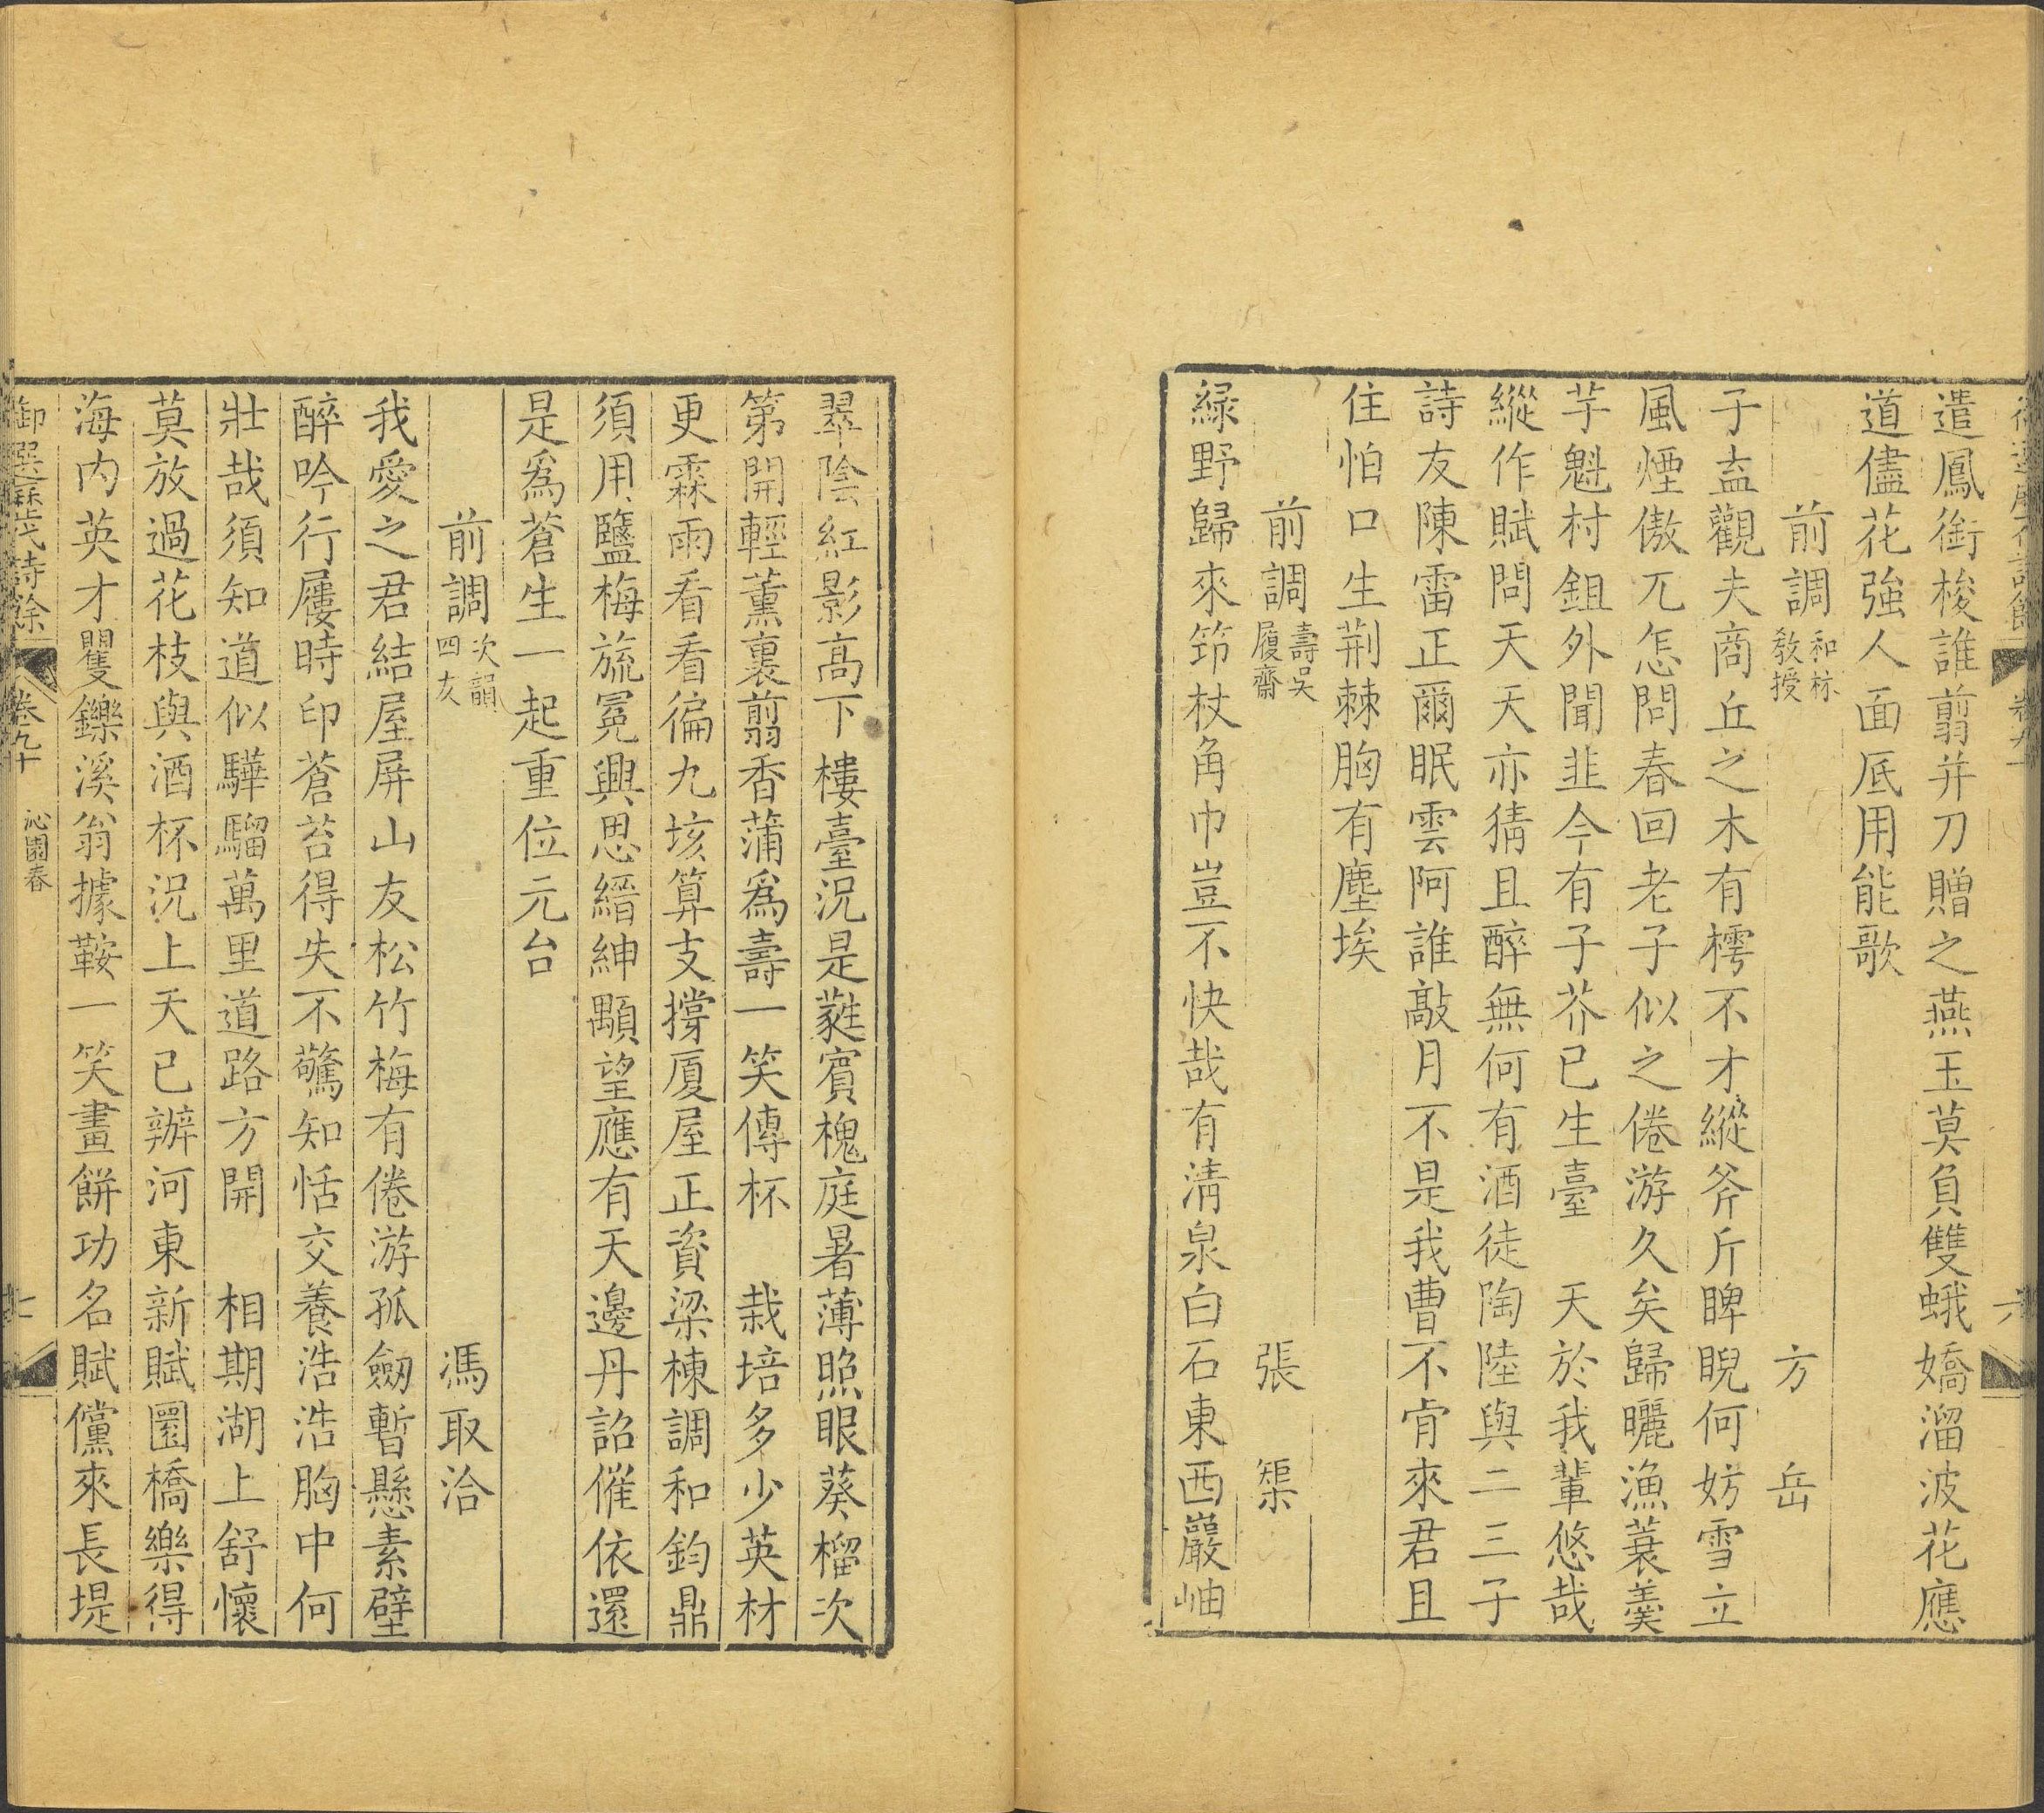 遣鳳銜梭誰翦并刀贈之燕玉莫負雙蛾嬌溜波花應
道儘花強人面底用能歌
前調 和林教授 方岳
子盍觀夫商丘之木有樗不才縱斧斤睥睨何妨雪立
風煙傲兀怎問春回老子似之倦游久矣歸曬漁蓑羹
芋魁村鉏外聞韭今有子芥已生臺 天於我輩悠哉
縱作賦問天天亦猜且醉無何有酒徒陶陸與二三子
詩友陳雷正爾眠雲阿誰敲月不是我曹不肯來君且
住怕口生荆棘胸有塵埃
前調 壽吳履齋 張榘
緑野歸來笻杖角巾豈不快哉有清泉白石東西巖岫
翠陰紅影高下樓臺況是蕤賓槐庭暑薄照眼葵榴次
第開輕薰裏翦香蒲為壽一笑傳杯 栽培多少英材
更霖雨看看徧九垓算支撐厦屋正資梁棟調和鈞鼎
須用鹽梅旒冕興思縉紳顒望應有天邊丹詔催依還
是爲蒼生一起重位元台
前調 次韻四友 馮取洽
我愛之君結屋屏山友松竹梅有倦游孤劒暫懸素壁
醉吟行屨時印蒼苔得失不驚知恬交養浩浩胸中何
壯哉須知道似驊騮萬里道路方開 相期湖上舒懷
莫放過花枝與酒杯況上天已辦河東新賦圜橋樂得
海内英才矍鑠溪翁據鞍一笑畫餅功名賦儻來長堤
御選歷代詩餘 卷九十 沁園春 七